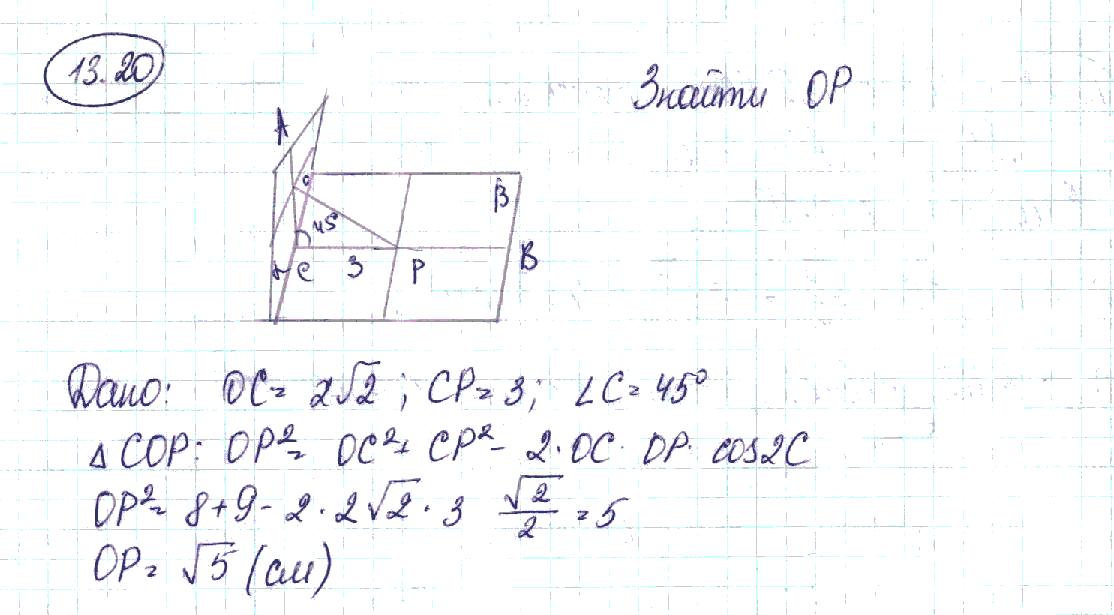 13.20
Знайти OP
A
O
β
45
α C 3 P B
Дано: OC = 2√2 ; CP = 3; ∠C = 45°
△ COP: OP² = OC² + CP² - 2·OC· OP· cos∠C
OP² = 8+9- 2·2√2·3 √2/2 = 5
OP = √5 (см)